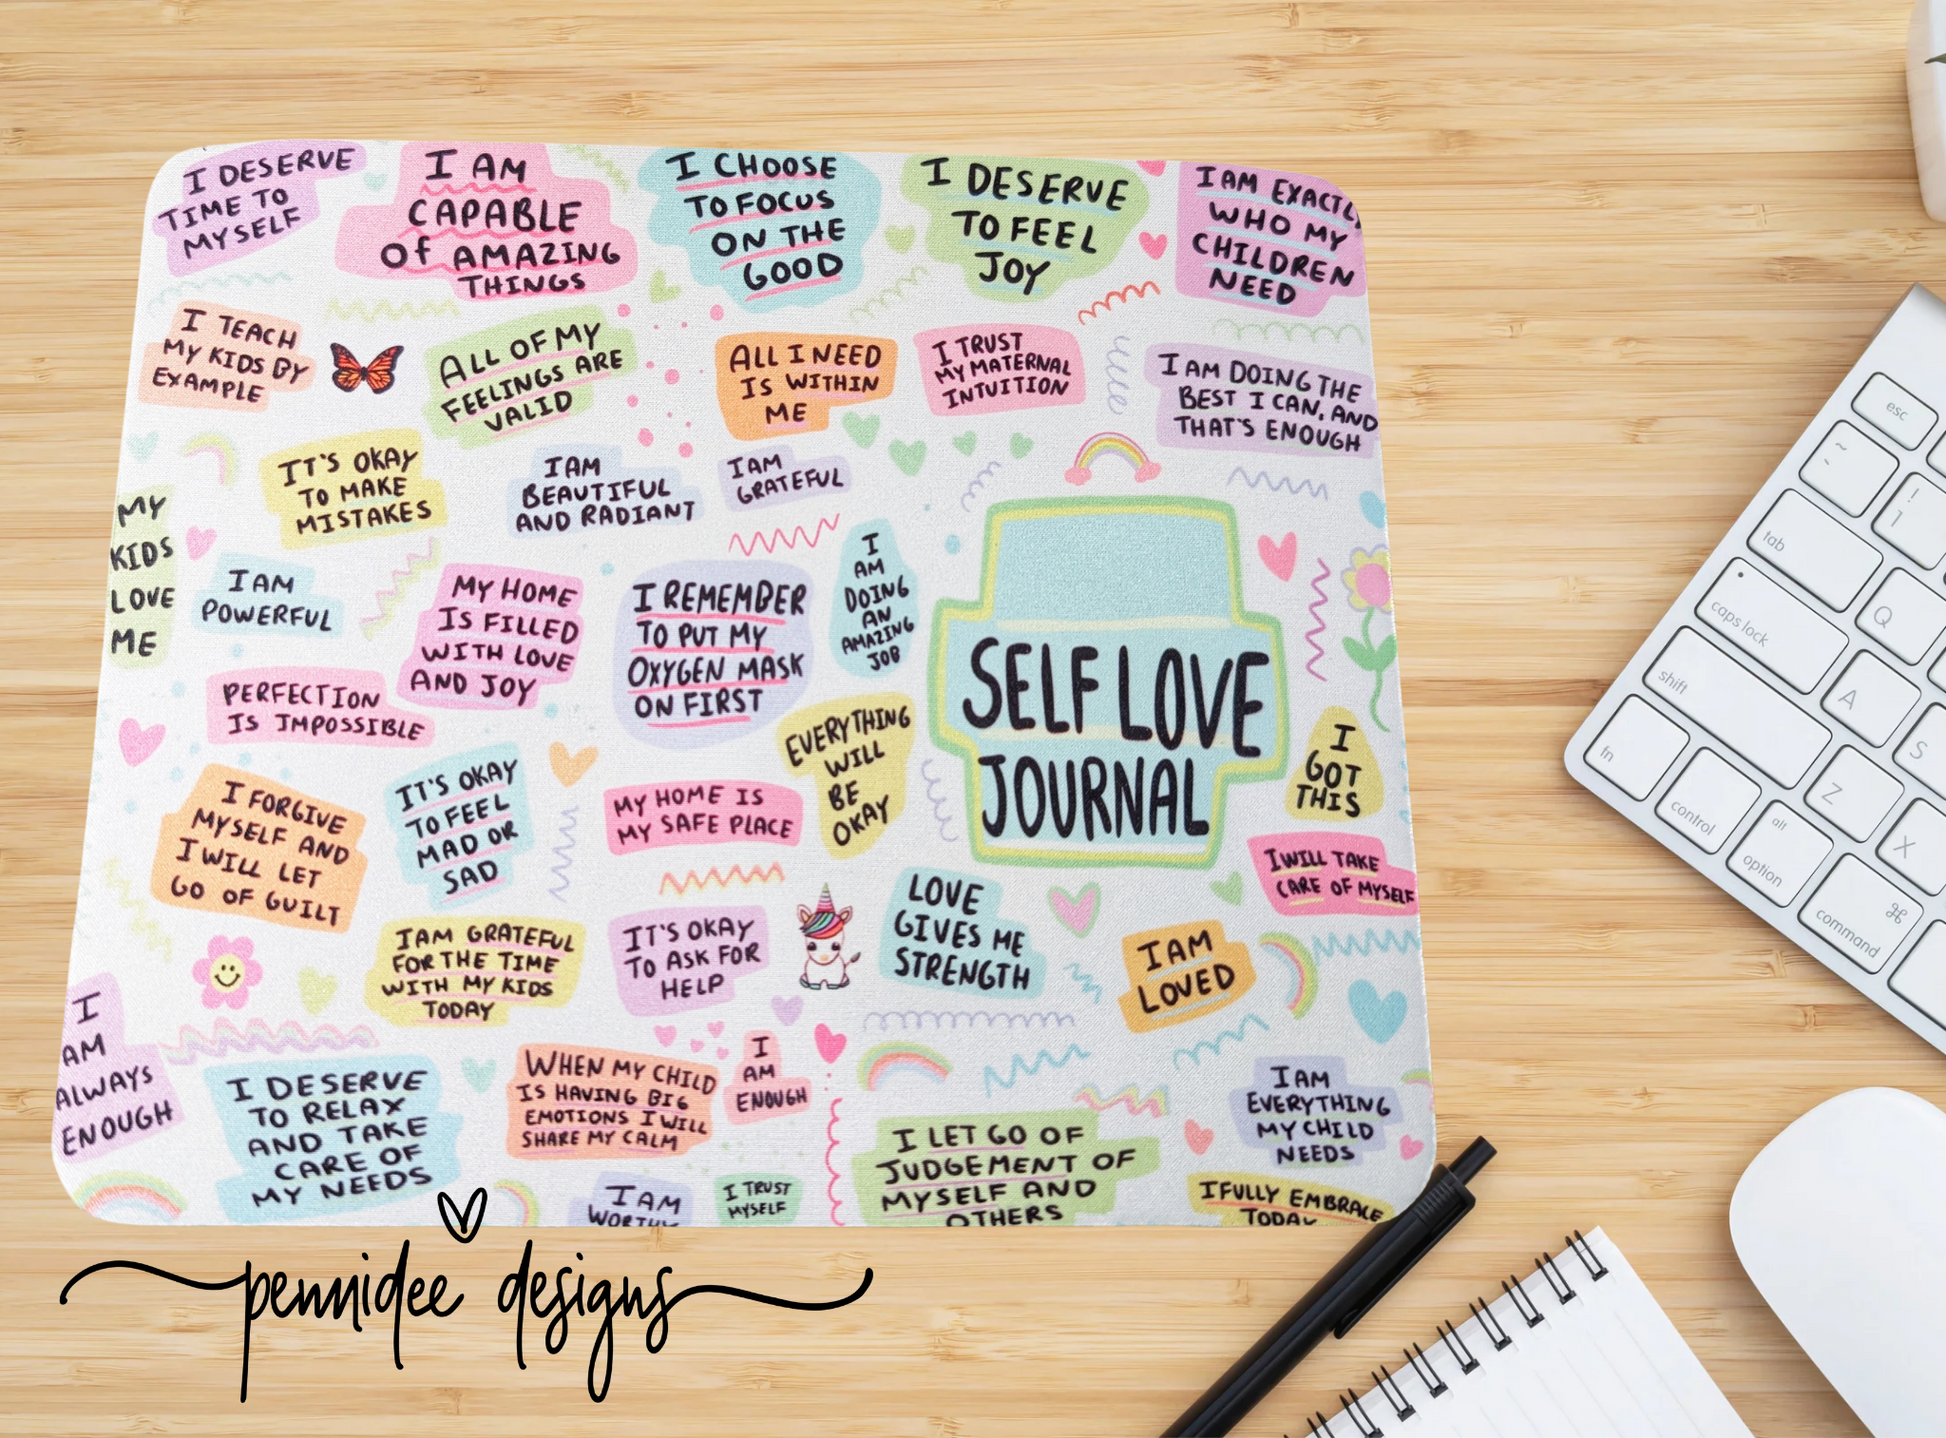 I DESERVE
TIME TO
MYSELF
I AM
CAPABLE
Of AMAZING
THINGS
I CHOOSE
TO FOCUS
ON THE
GOOD
I DESERVE
TO FEEL
JOY
I AM EXACTLY
WHO MY
CHILDREN
NEED
I TEACH
MY KIDS BY
EXAMPLE
ALL OF MY
FEELINGS ARE
VALID
ALL I NEED
IS WITHIN
ME
I TRUST
MY MATERNAL
INTUITION
I AM DOING THE
BEST I CAN, AND
THAT'S ENOUGH
IT'S OKAY
TO MAKE
MISTAKES
I AM
BEAUTIFUL
AND RADIANT
I AM
GRATEFUL
MY
KIDS
LOVE
ME
I AM
POWERFUL
MY HOME
IS FILLED
WITH LOVE
AND JOY
I REMEMBER
TO PUT MY
OXYGEN MASK
ON FIRST
I
AM
DOING
AN
AMAZING
JOB
SELF LOVE
JOURNAL
PERFECTION
IS IMPOSSIBLE
EVERYTHING
WILL
BE
OKAY
I
GOT
THIS
I FORGIVE
MYSELF AND
I WILL LET
GO OF GUILT
IT'S OKAY
TO FEEL
MAD OR
SAD
MY HOME IS
MY SAFE PLACE
I WILL TAKE
CARE OF MYSELF
I AM GRATEFUL
FOR THE TIME
WITH MY KIDS
TODAY
IT'S OKAY
TO ASK FOR
HELP
LOVE
GIVES ME
STRENGTH
I AM
LOVED
I
AM
ALWAYS
ENOUGH
I DESERVE
TO RELAX
AND TAKE
CARE OF
MY NEEDS
WHEN MY CHILD
IS HAVING BIG
EMOTIONS I WILL
SHARE MY CALM
I
AM
ENOUGH
I AM
EVERYTHING
MY CHILD
NEEDS
I LET GO OF
JUDGEMENT OF
MYSELF AND
OTHERS
I AM
WORTHY
I TRUST
MYSELF
I FULLY EMBRACE
TODAY
pennidee designs
esc
~
`
!
1
tab
Q
caps lock
A
S
shift
Z
X
fn
control
alt
option
⌘
command